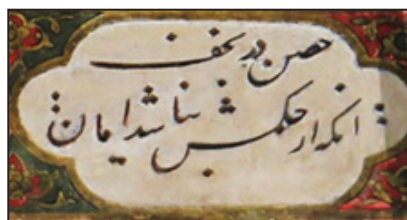 حصن در نجف
آنکه از حکمش بنا شد ایمان